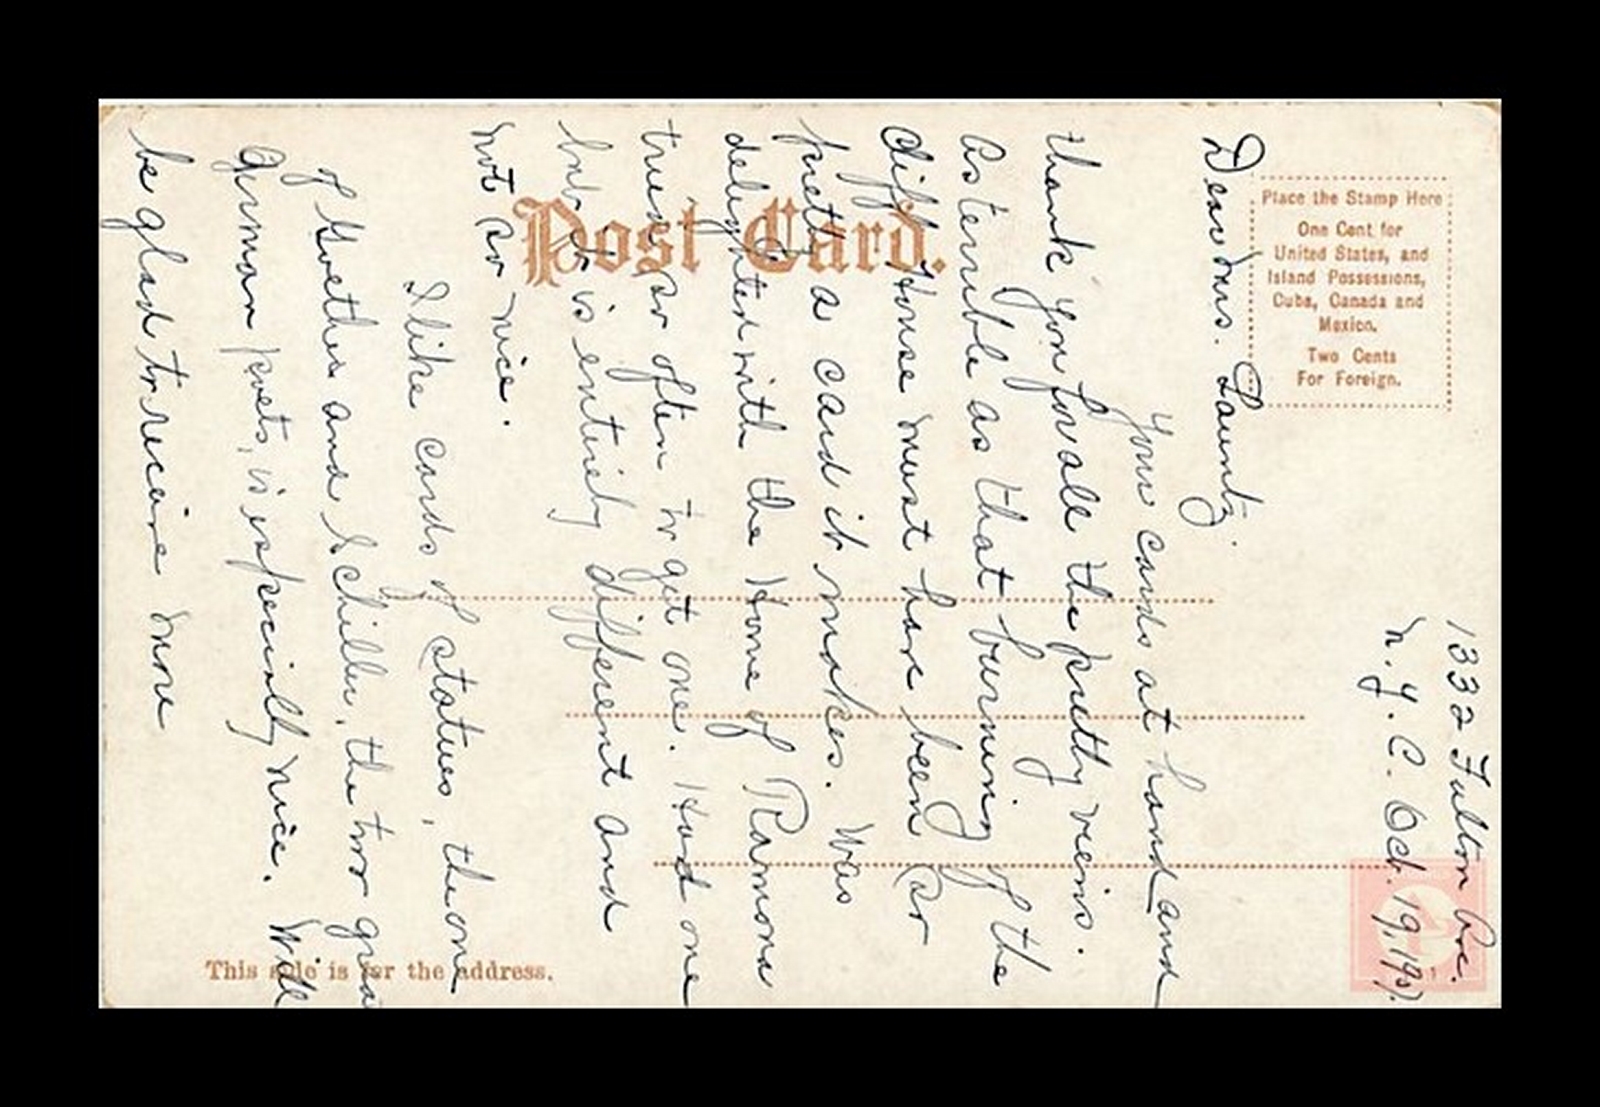 Post Card.
Place the Stamp Here
One Cent for
United States, and
Island Possessions,
Cuba, Canada and
Mexico.
Two Cents
For Foreign.
This side is for the address.
1332 Fulton Ave.
N.Y.C. Oct. 19, 1907.
Dear Mrs.
Your cards at hand and
thank you for all the pretty views.
As terrible as that burning of the
Cliff House must have been (or
pretty a card it makes. Was
delighted with the Home of Ramona
tried so often to get one. Had one
but is entirely different and
not so nice.
I like cards of statues, the one
of Goethe and Schiller, the two grea
German poets, is especially nice. Will
be glad to receive more